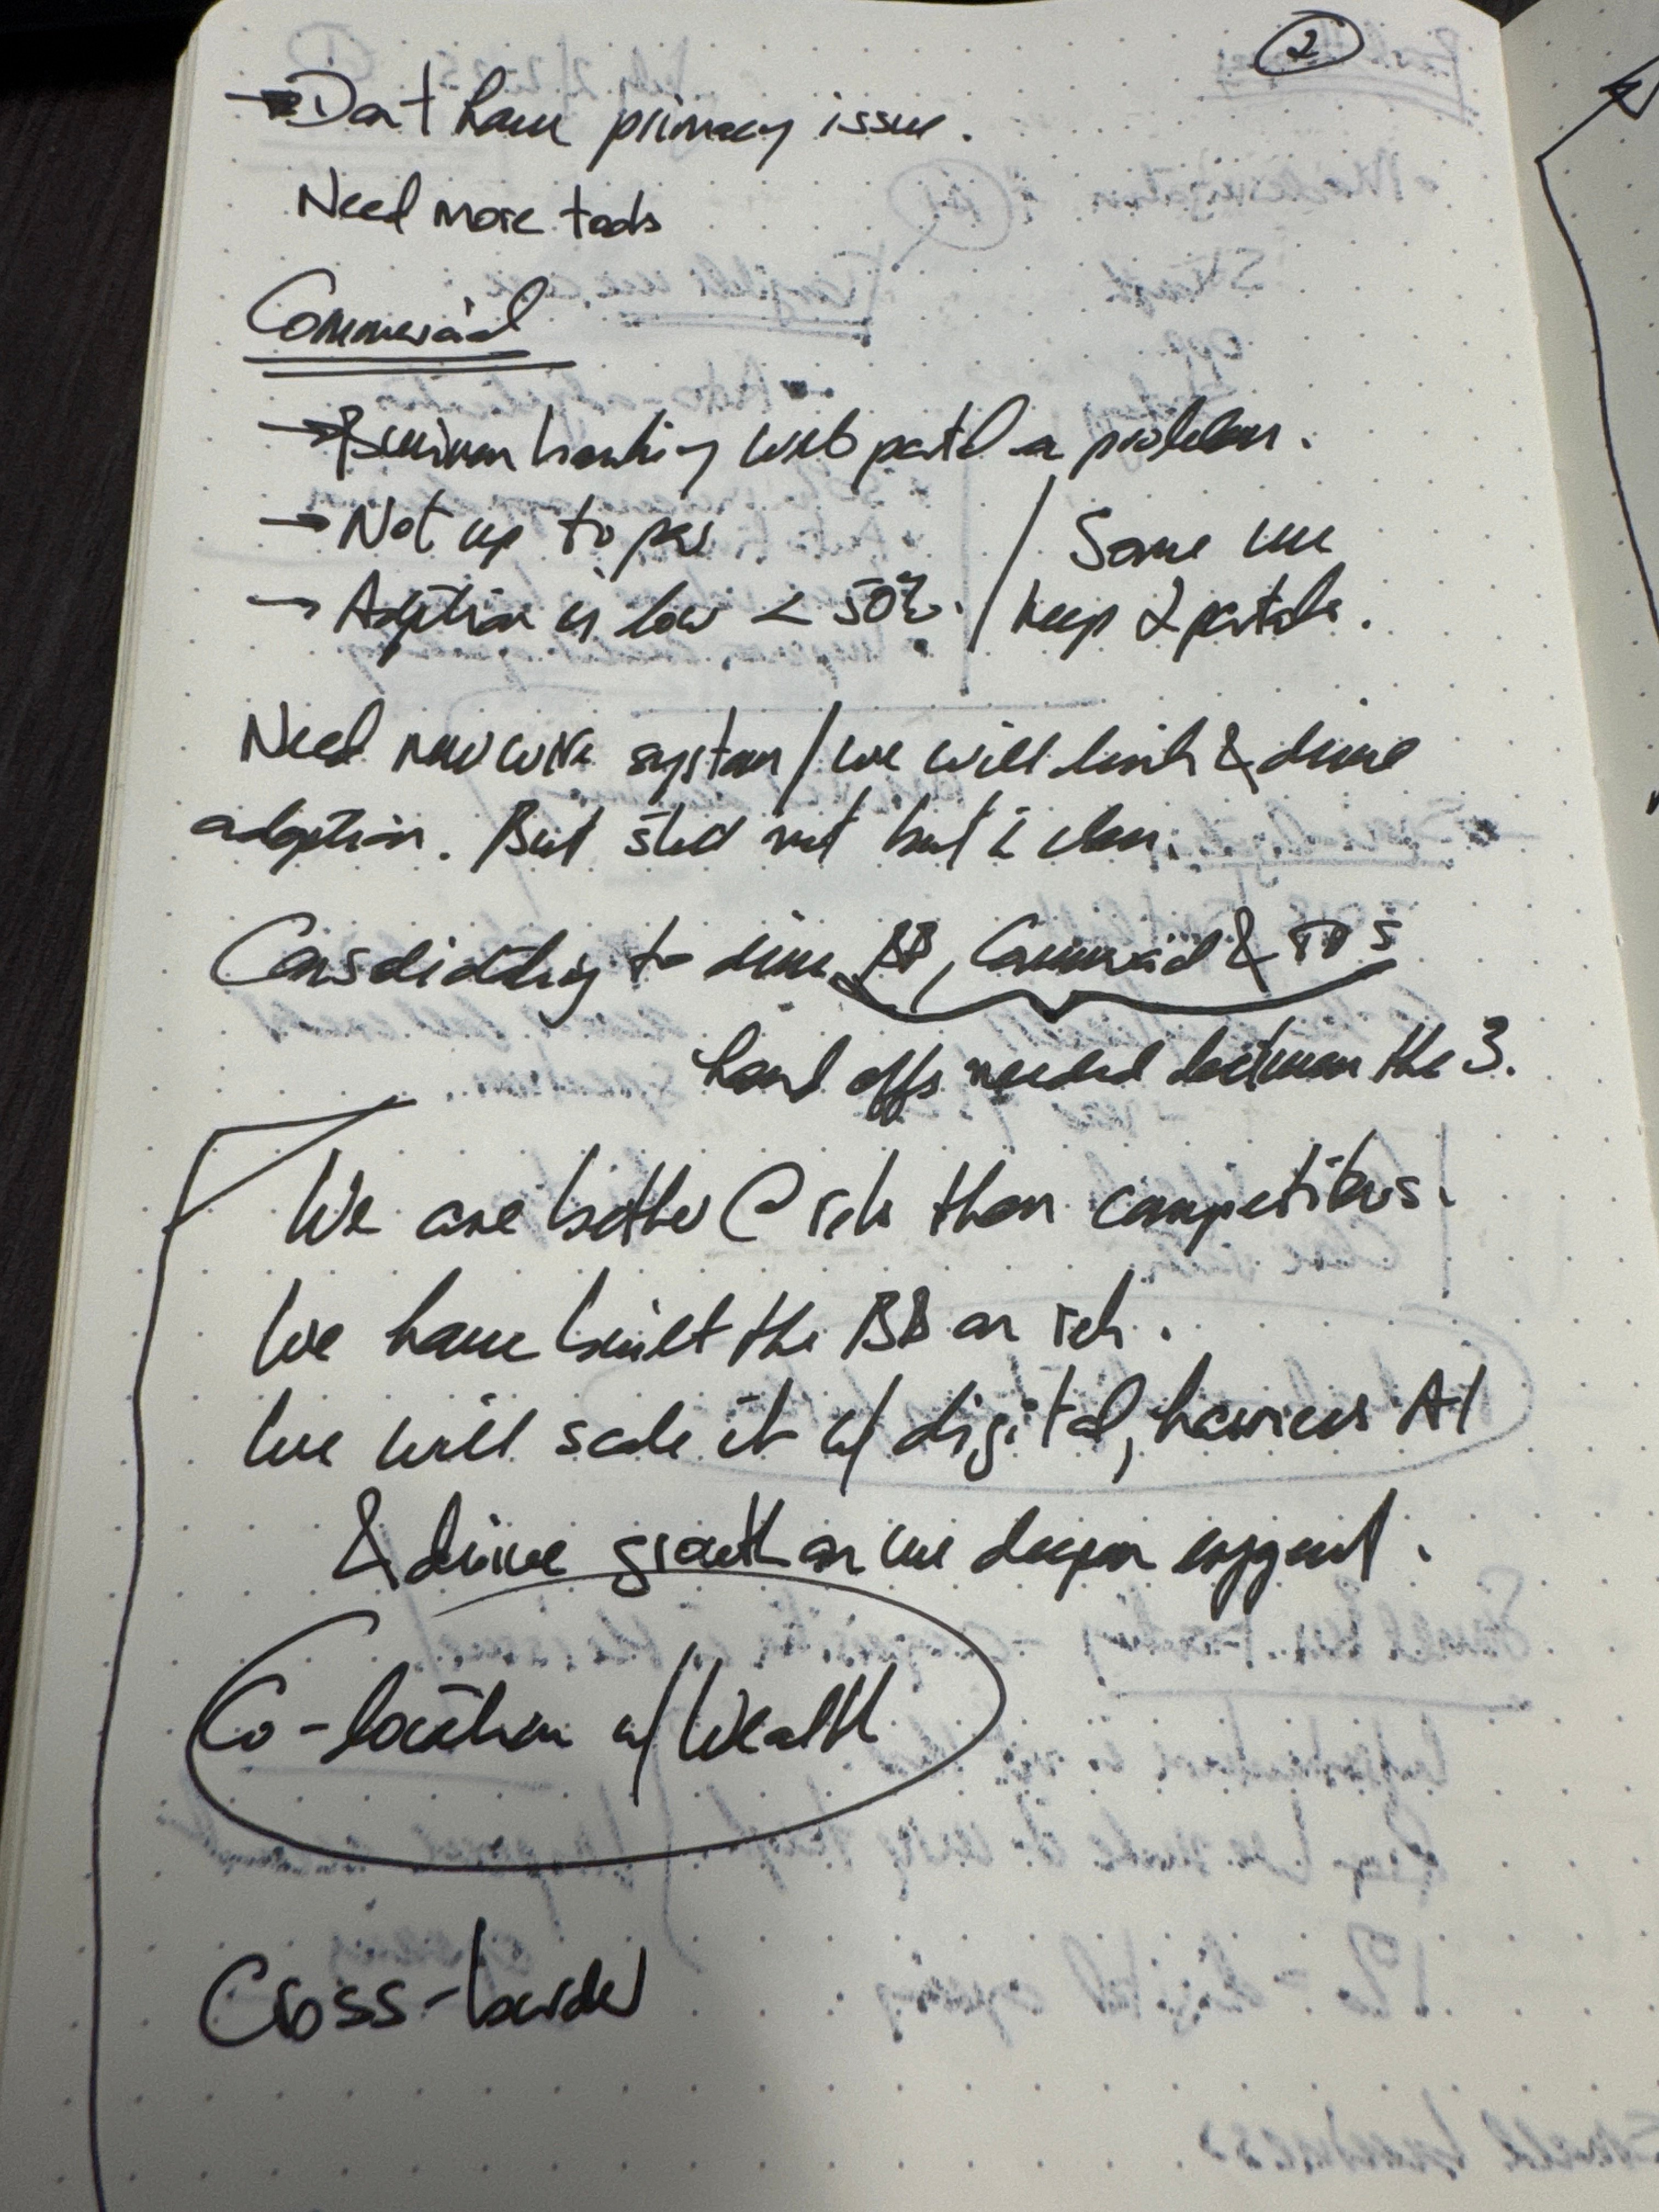 2
→ Don't have primacy issue.
Need more tools
Commercial
→ Business banking web portal a problem.
→ Not up to par
→ Adoption is low < 50%. / Some use
keep 2 portals.
Need new wire system / we will & drive
adoption. But still not best in class.
Consolidating to drive BB, Commercial &
hand offs needed between the 3.
We are better @ risk than competitors.
We have built the BB on risk.
We will scale it w/ digital, harness AI
& drive growth as we deepen
Co-location w/ Wealth
Cross-border